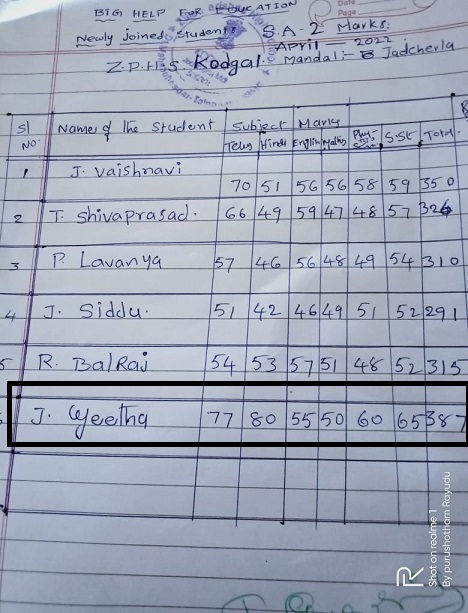 BIG HELP FOR EDUCATION
Date
Page
Newly joined Students S.A-2 Marks:
April - 2022
Z.P.H.S. Kodgal. Mandal:- Jadcherla
Sl No. Name of the Student Subject Marks
Telugu Hindi English Maths Phy. S.St Total.
1 J. Vaishnavi 70 51 56 56 58 59 350
2 T. Shivaprasad. 66 49 59 47 48 57 326
3 P. Lavanya 57 46 56 48 49 54 310
4 J. Siddu. 51 42 46 49 51 52 291
5 R. BalRaj 54 53 57 51 48 52 315
J. Geetha 77 80 55 50 60 65 387
Shot on realme 1
By purushotham Rayudu